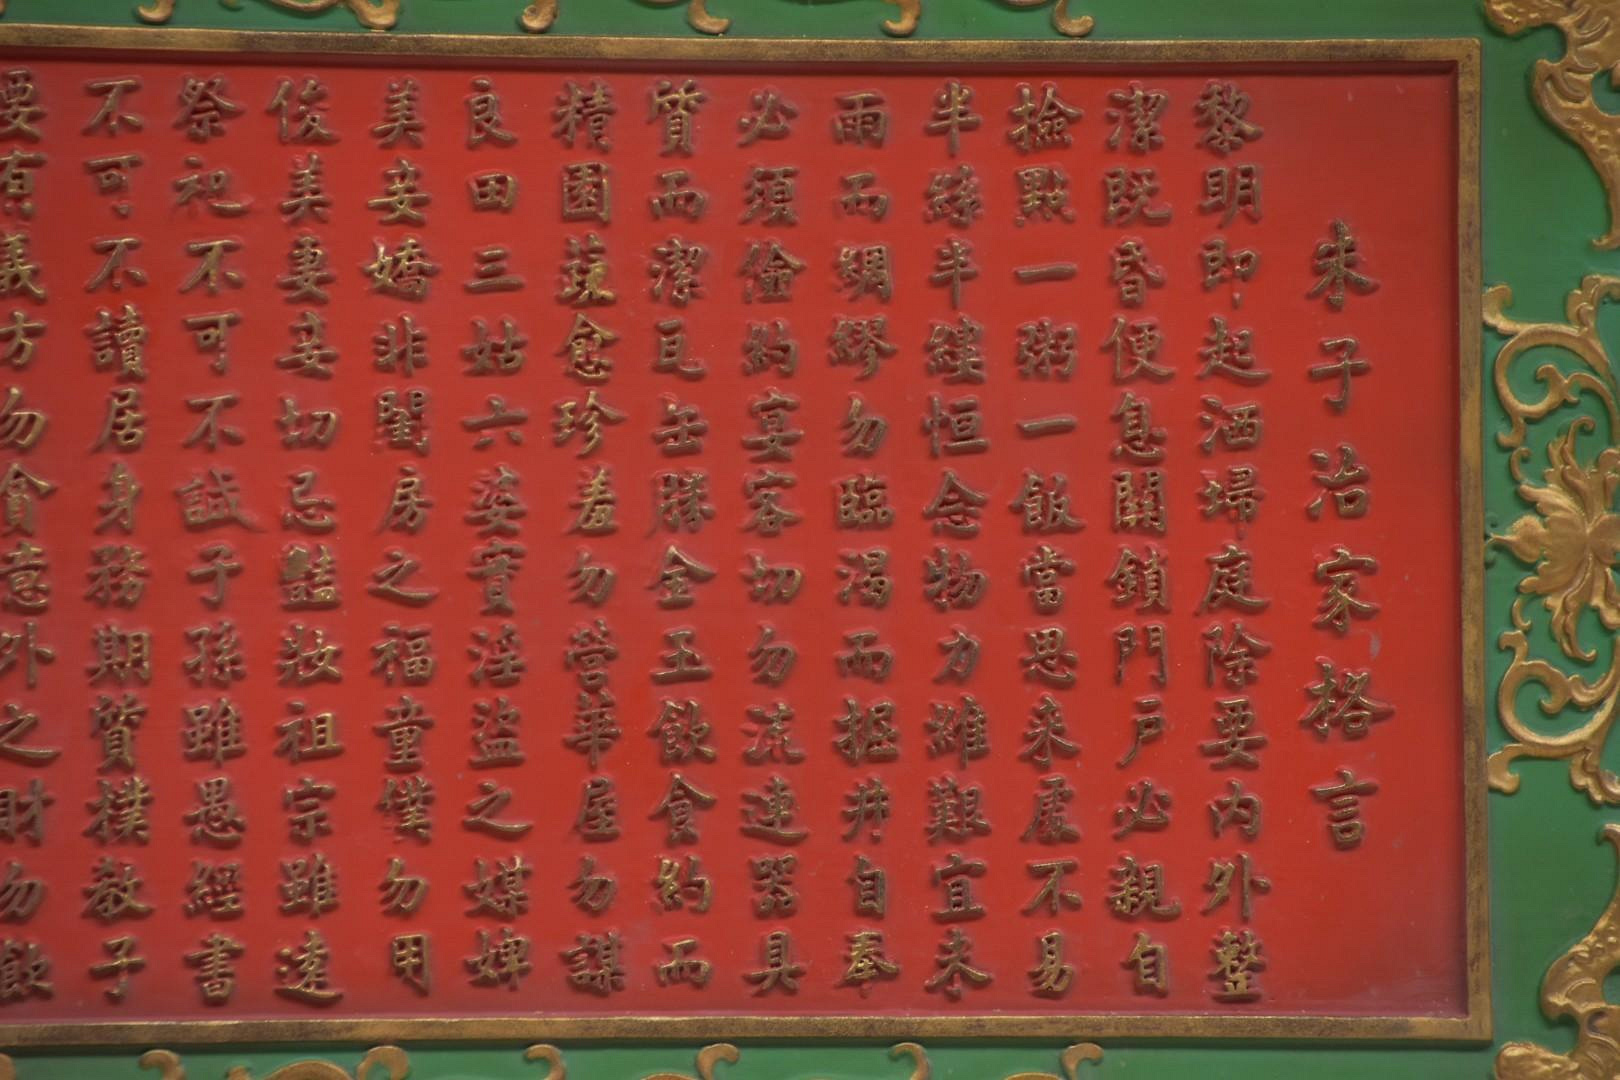 朱子治家格言
黎明即起洒埽庭除要内外整
潔既昏便息關鎖門戶必親自
撿點一粥一飯當思来處不易
半絲半縷恒念物力維艱宜未
雨而綢繆勿臨渴而掘井自奉
必須儉約宴客切勿流連器具
質而潔瓦缶勝金玉飲食約而
精園蔬愈珍羞勿營華屋勿謀
良田三姑六婆實淫盜之媒婢
美妾嬌非閨房之福童僕勿用
俊美妻妾切忌豔妝祖宗雖遠
祭祀不可不誠子孫雖愚經書
不可不讀居身務期質樸教子
要有義方勿貪意外之財勿飲